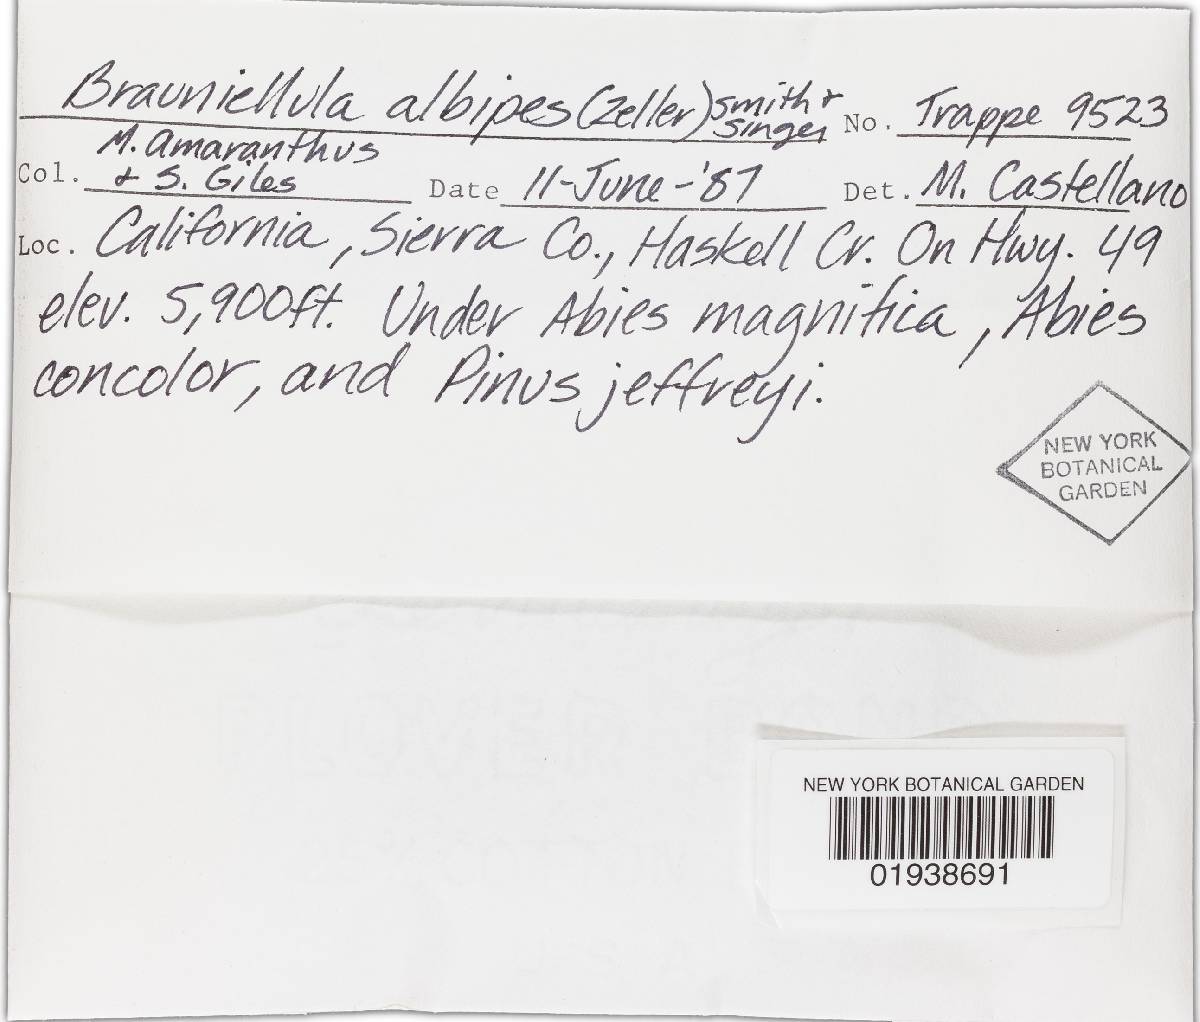 Brauniellula albipes (Zeller) Smith + Singer No. Trappe 9523
Col. M. Amaranthus + S. Giles Date 11-June-'87 Det. M. Castellano
Loc. California, Sierra Co., Haskell Cr. On Hwy. 49
elev. 5,900ft. Under Abies magnifica, Abies
concolor, and Pinus jeffreyi.
NEW YORK
BOTANICAL
GARDEN
NEW YORK BOTANICAL GARDEN
01938691